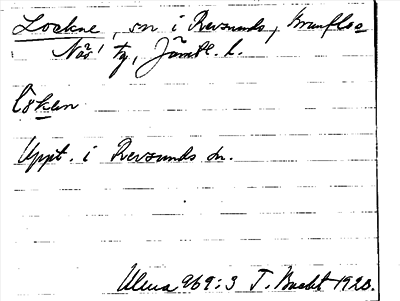 Lockne, sn i Revsunds, Brunflo o
Näs' tg, Jämtl. l.
Löken
Uppt. i Revsunds sn.
Ulma 969:3 T. Bucht 1920.